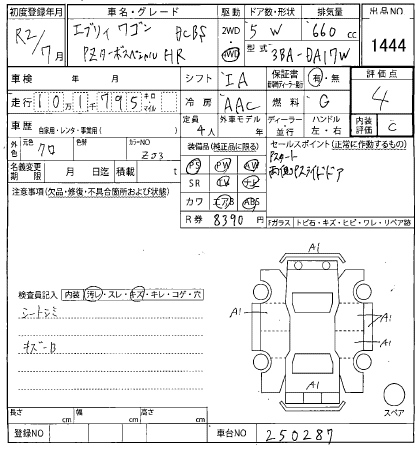 初度登録年月 車名・グレード 駆動 ドア数・形状 排気量 出品NO
R2/7月 エブリィワゴン DCBS 2WD 5 W 660 cc 1444
PZターボスペシャル HR 4WD 型式 3BA-DA17W
車検 年 月 シフト IA 保証書 有・無 評価点
走行 10万1千795 キロ マイル 冷房 AAC 燃料 G 4
車歴 自家用・レンタ・事業用( ) 定員 4人 外車モデル 年 ディーラー・並行 ハンドル 左・右 内装評価 C
外色 元色 クロ 色替 カラーNO Z03 装備品(純正品に限る) セールスポイント(正常に作動するもの)
名義変更期限 月 日 積載 t PS PW AW Pスタート
注意事項(欠品・修復・不具合箇所および状態) SR ナビ 両側Pスライドドア
カワ エアB ABS
R券 8390円 Fガラス トビ石・キズ・ヒビ・ワレ・リペア跡
A1
検査員記入 内装 汚レ・スレ・キズ・キレ・コゲ・穴
シートシミ A1 A1 A1
キズ小
A1
A1
スペア
長さ cm 幅 cm 高さ cm
登録NO 車台NO 250287